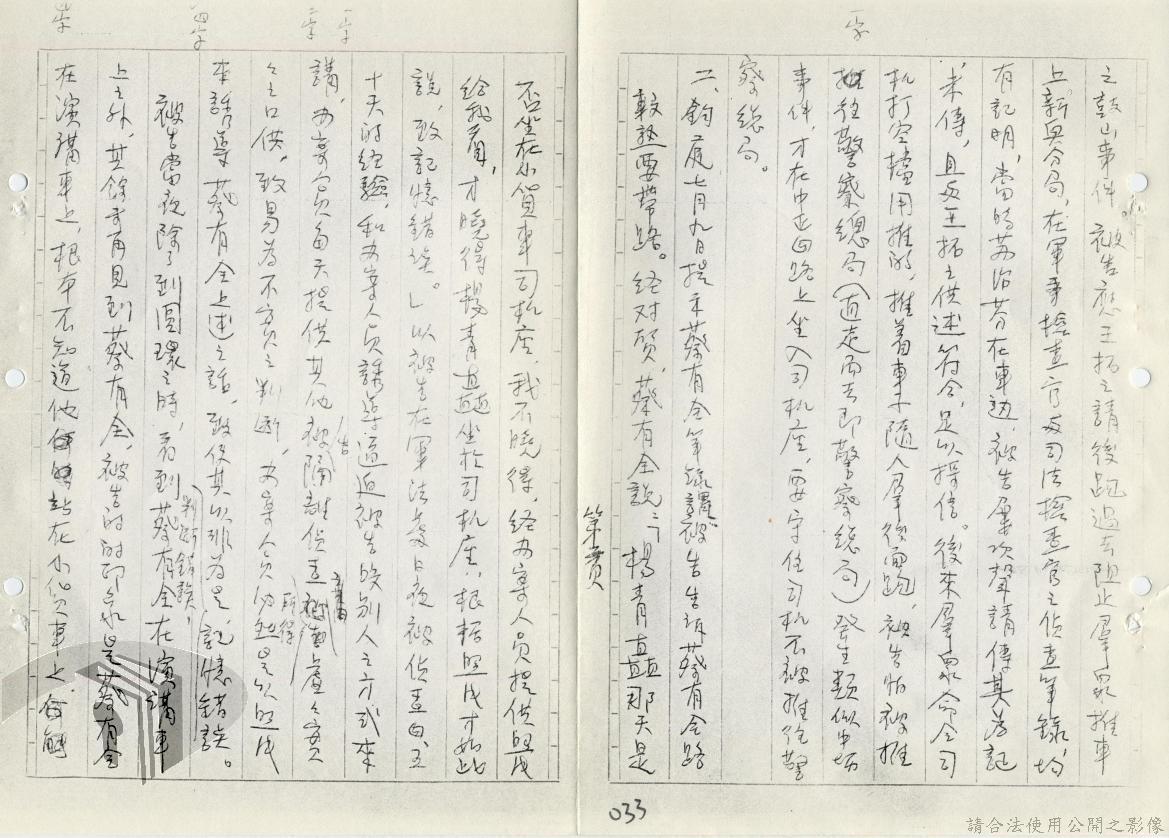 之鼓山事件。被告應王拓之請後跑過去阻止羣眾推車
上新興分局,在軍事檢查官及司法檢查官之偵查筆錄,均
有記明,當時蘇治芬在車邊,被告屢次聲請傳其為記
未傳,且與王拓之供述符合,足以採信。後來羣眾命令司
机打空擋用推的,推着車子隨人羣後面跑,被告怕被推
往警察總局(直走而去即警察總局)發生類似中坜
事件,才在中正四路上坐入司机座,要守住司机不被推往警
察總局。
二、鈞庭七月九日提示蔡有全筆錄謂被告告訴蔡有全路
較熟要帶路。經对質,蔡有全說:「楊青矗那天是
否坐在小貨車司机座,我不曉得,經办案人員提供照片
給我看,才曉得楊青矗坐於司机座,根据照片才如此
說,致記憶錯誤。」以被告在軍法處日夜被偵查四、五
十天的經驗,和办案人員誘導逼迫被告咬別人之方式來
講,办案人員每天提供其他被隔離偵查被告虛虛實實
之口供,致易為不實之判斷,办案人員仍然是以照片
來誘導蔡有全上述之話,致使其以非為是,記憶錯誤。
判斷錯誤,
所得
被告當夜除了到圓環之時,看到蔡有全在演講車
上之外,其餘未再見到蔡有全,被告的印象是蔡有全
在演講車上,根本不知道他站在小貨車上,何能
033
請合法使用公開之影像